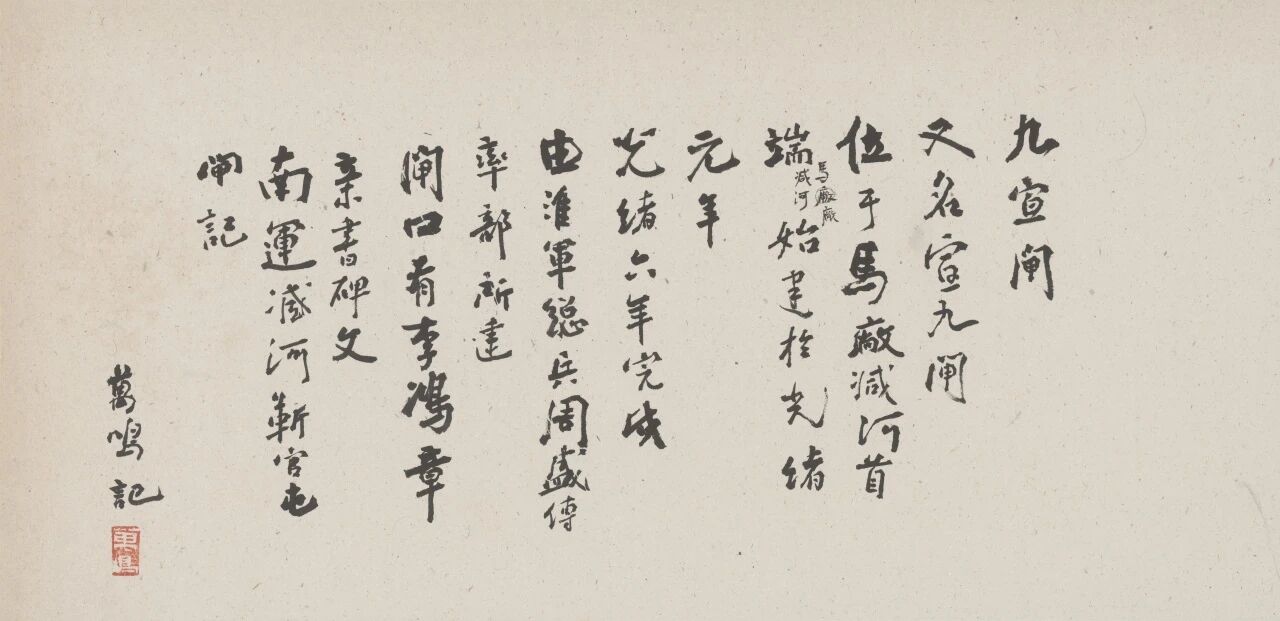 九宣閘
又名宣九閘
位于馬廠減河首
端始建於光緒
馬廠廠
減河
元年
光緒六年完成
由淮軍總兵周盛傳
率部所建
閘口有李鴻章
亲書碑文
南運減河靳官屯
閘記
萬鳴記